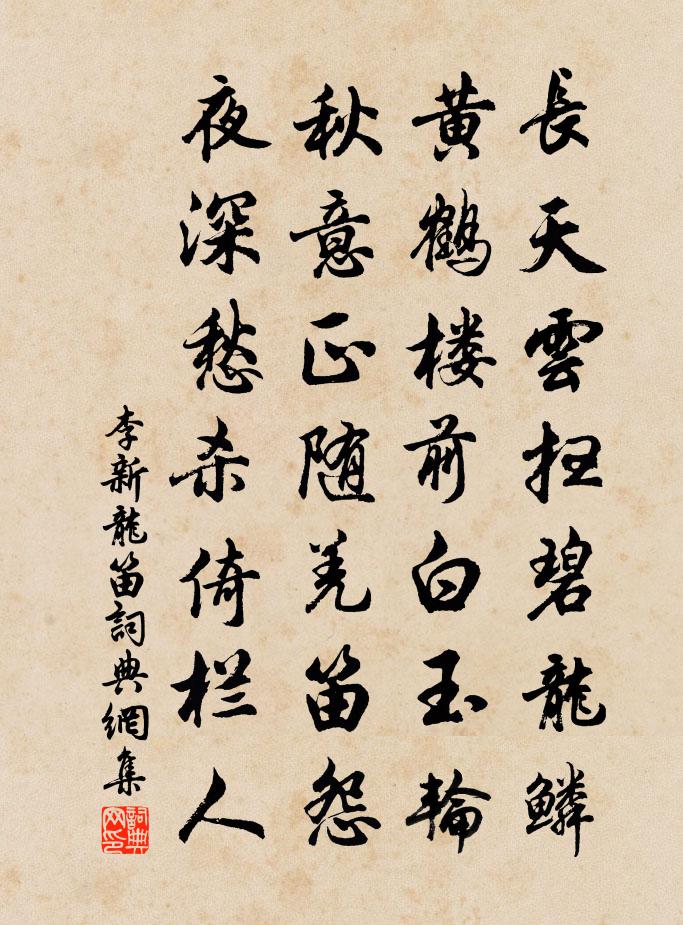 長天雲扫碧龍鱗
黄鶴楼前白玉輪
秋意正随羌笛怨
夜深愁杀倚栏人
李新龍笛詞典網集
詞典网印